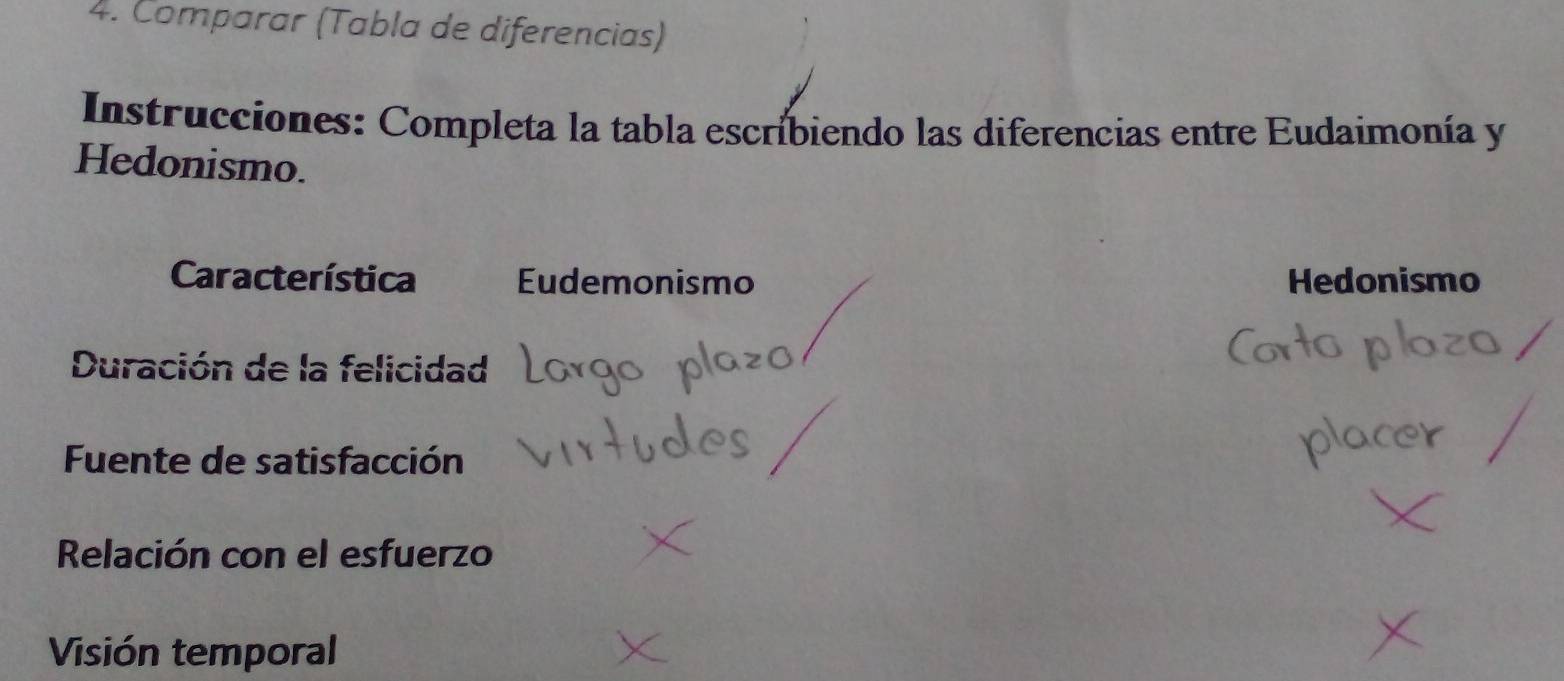 4. Comparar (Tabla de diferencias)
Instrucciones: Completa la tabla escribiendo las diferencias entre Eudaimonía y
Hedonismo.
Característica Eudemonismo Hedonismo
Duración de la felicidad Largo plazo Corto plazo
Fuente de satisfacción virtudes placer
Relación con el esfuerzo
Visión temporal